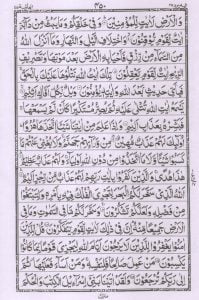 ۴۵۰
وَالْاَرْضِ لَاٰيٰتٍ لِّلْمُؤْمِنِيْنَ ۞ وَفِيْ خَلْقِكُمْ وَمَا يَبُثُّ مِنْ دَآبَّةٍ
اٰيٰتٌ لِّقَوْمٍ يُّوْقِنُوْنَ ۞ وَاخْتِلَافِ الَّيْلِ وَالنَّهَارِ وَمَآ اَنْزَلَ اللّٰهُ
مِنَ السَّمَآءِ مِنْ رِّزْقٍ فَاَحْيَا بِهِ الْاَرْضَ بَعْدَ مَوْتِهَا وَتَصْرِيْفِ
الرِّيٰحِ اٰيٰتٌ لِّقَوْمٍ يَّعْقِلُوْنَ ۞ تِلْكَ اٰيٰتُ اللّٰهِ نَتْلُوْهَا عَلَيْكَ بِالْحَقِّ
فَبِاَيِّ حَدِيْثٍۢ بَعْدَ اللّٰهِ وَاٰيٰتِهٖ يُؤْمِنُوْنَ ۞ وَيْلٌ لِّكُلِّ اَفَّاكٍ اَثِيْمٍ ۞
يَّسْمَعُ اٰيٰتِ اللّٰهِ تُتْلٰى عَلَيْهِ ثُمَّ يُصِرُّ مُسْتَكْبِرًا كَاَنْ لَّمْ يَسْمَعْهَا
فَبَشِّرْهُ بِعَذَابٍ اَلِيْمٍ ۞ وَاِذَا عَلِمَ مِنْ اٰيٰتِنَا شَيْـًٔا اتَّخَذَهَا هُزُوًا
اُولٰٓئِكَ لَهُمْ عَذَابٌ مُّهِيْنٌ ۞ مِنْ وَّرَآئِهِمْ جَهَنَّمُ وَلَا يُغْنِيْ عَنْهُمْ مَّا
كَسَبُوْا شَيْـًٔا وَّلَا مَا اتَّخَذُوْا مِنْ دُوْنِ اللّٰهِ اَوْلِيَآءَ وَلَهُمْ عَذَابٌ عَظِيْمٌ ۞
هٰذَا هُدًى وَالَّذِيْنَ كَفَرُوْا بِاٰيٰتِ رَبِّهِمْ لَهُمْ عَذَابٌ مِّنْ رِّجْزٍ اَلِيْمٌ ۞
اَللّٰهُ الَّذِيْ سَخَّرَ لَكُمُ الْبَحْرَ لِتَجْرِيَ الْفُلْكُ فِيْهِ بِاَمْرِهٖ وَلِتَبْتَغُوْا
مِنْ فَضْلِهٖ وَلَعَلَّكُمْ تَشْكُرُوْنَ ۞ وَسَخَّرَ لَكُمْ مَّا فِي السَّمٰوٰتِ وَمَا فِي
الْاَرْضِ جَمِيْعًا مِّنْهُ اِنَّ فِيْ ذٰلِكَ لَاٰيٰتٍ لِّقَوْمٍ يَّتَفَكَّرُوْنَ ۞ قُلْ لِّلَّذِيْنَ
اٰمَنُوْا يَغْفِرُوْا لِلَّذِيْنَ لَا يَرْجُوْنَ اَيَّامَ اللّٰهِ لِيَجْزِيَ قَوْمًۢا بِمَا كَانُوْا
يَكْسِبُوْنَ ۞ مَنْ عَمِلَ صَالِحًا فَلِنَفْسِهٖ وَمَنْ اَسَآءَ فَعَلَيْهَا ثُمَّ
اِلٰى رَبِّكُمْ تُرْجَعُوْنَ ۞ وَلَقَدْ اٰتَيْنَا بَنِيْٓ اِسْرَآءِيْلَ الْكِتٰبَ وَالْحُكْمَ